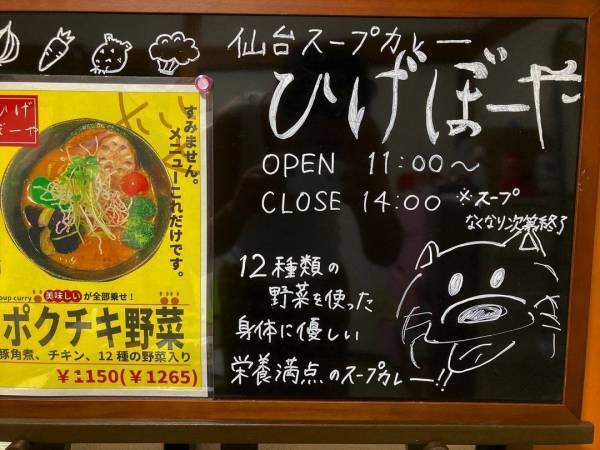 ひげ
ぼーや
すみません。
メニューこれだけです。
soup curry
美味しいが全部乗せ！
ポクチキ野菜
豚角煮、チキン、12種の野菜入り
￥1150(￥1265)
仙台スープカレー
ひげぼーや
OPEN 11:00〜
CLOSE 14:00 ※スープ
なくなり次第終了
12種類の
野菜を使った
身体に優しい
栄養満点のスープカレー!!